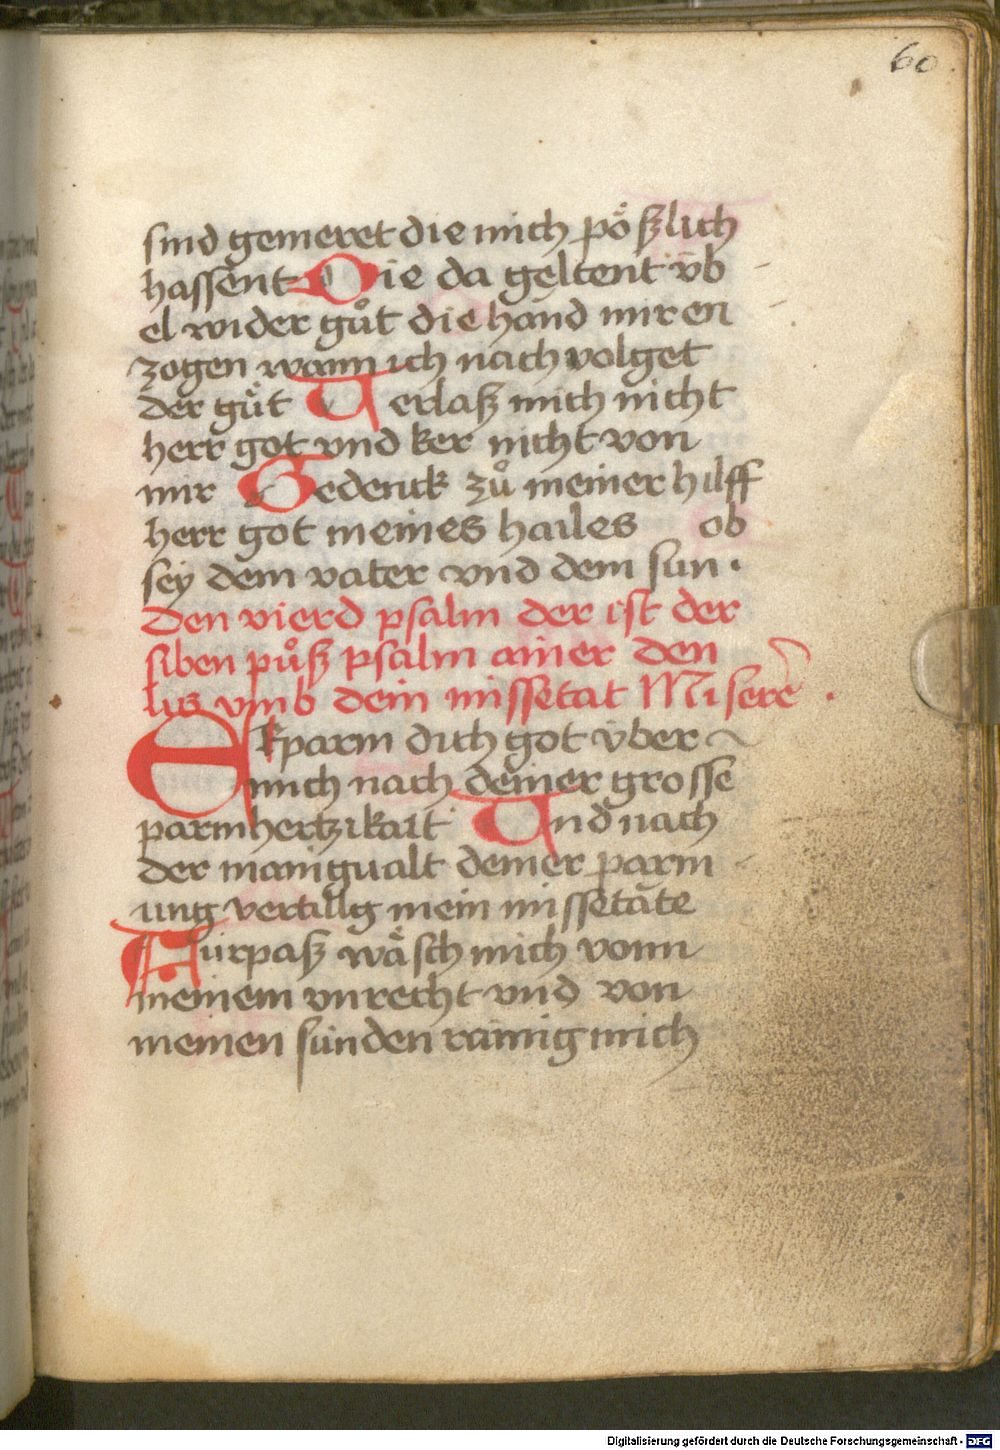 60
sind gemeret die mich pößlich
hassent Die da geltent vb
el wider gůt die hand mir en
zogen wann ich nach volget
der gůt Verlaß mich nicht
herr got vnd ker nicht von
mir Gedenck zů meiner hilff
herr got meines hailes ob
sey dem vater vnd dem sun ·
den vierd psalm der ist der
siben půß psalm ainer den
lis vmb dein missetat Miserē ·
Erparm dich got v̈ber
mich nach deiner grosse
parmhertzikait Vnd nach
der manigualt deiner parm
ung vertillg mein missetāte
Fürpaß wäsch mich vonn
meinem vnrecht vnd von
meinen sünden rainig mich
Digitalisierung gefördert durch die Deutsche Forschungsgemeinschaft - DFG